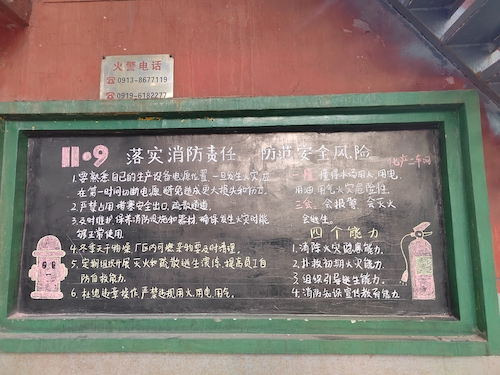 火警电话
☎0913-8677119
☎0919-6182277
11·9 落实消防责任，防范安全风险
生产二车间
1.要熟悉自己的生产设备电源位置 一旦发生火灾应
在第一时间切断电源，避免造成更大损失和伤亡。
2.严禁占用 堵塞安全出口，疏散通道
3.及时维护保养消防设施和器材，确保发生火灾时能
够正常使用
4.冬季天干物燥 厂区内可燃杂物要及时清理。
5.定期组织开展灭火和疏散逃生演练，提高员工自
防自救能力。
6.杜绝违章操作，严禁违规用火，用电，用气。
一懂 懂得本场所用火，用电，
用油 用气火灾危险性。
三会 会报警 会灭火
会逃生。
四个能力
1.消除火灾隐患能力。
2.扑救初期火灾能力。
3.组织引导逃生能力。
4.消防知识宣传教育能力